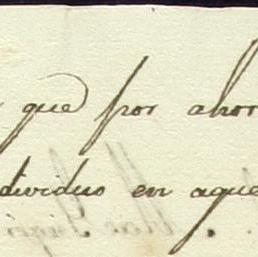 que por ahor
dividuo en aque